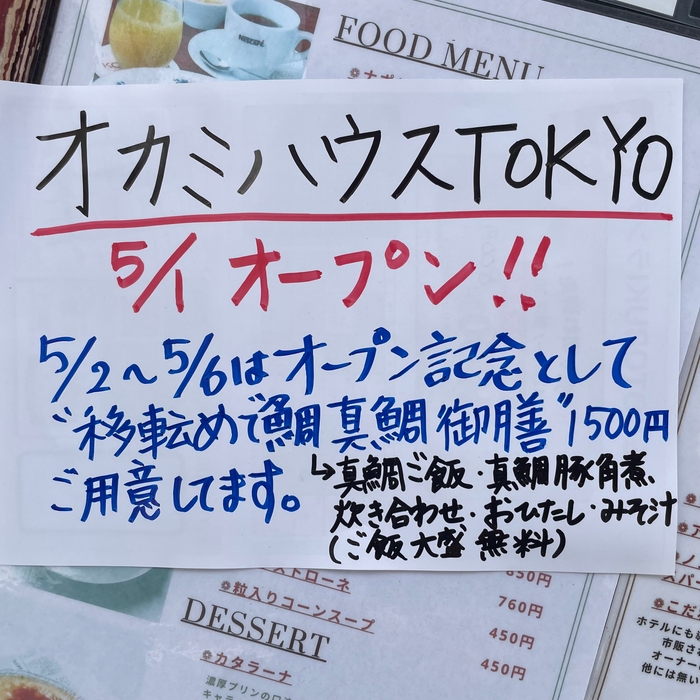 NESCAFÉ
FOOD MENU
オカミハウスTOKYO
5/1 オープン!!
5/2～5/6はオープン記念として
"移転めで鯛真鯛御膳"1500円
ご用意してます。
↳真鯛ご飯・真鯛豚角煮、
炊き合わせ・おひたし・みそ汁
(ご飯大盛無料)
ストローネ
850円
❁粒入りコーンスープ
760円
DESSERT
450円
❁カタラーナ
450円
濃厚プリンの口
キャラ
❁こだ
ホテルにも
市販さ
オーナー
他には無い